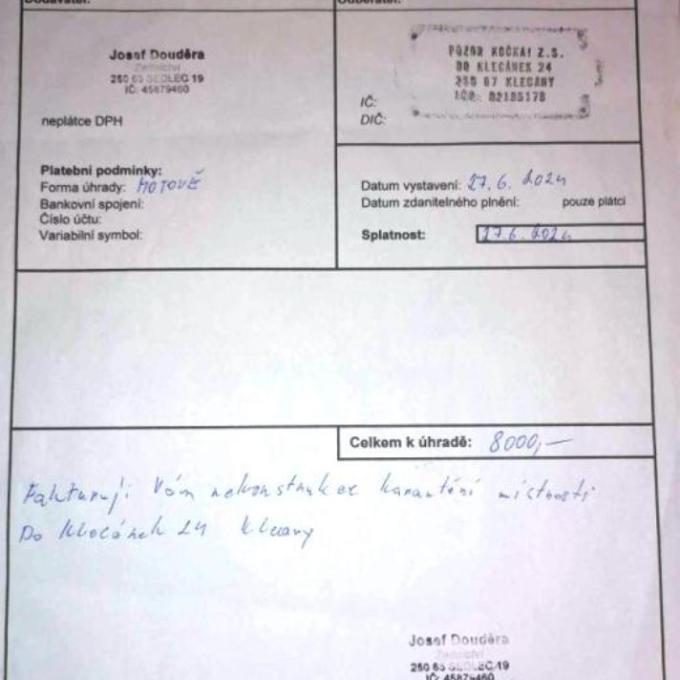 Dodavatel:
Odběratel:
Josef Douděra
Zednictví
250 65 SEDLEC 19
IČ: 45879460
neplátce DPH
POZOR KOČKA! Z.S.
DO KLECÁNEK 24
250 67 KLECANY
IČO: 02185178
IČ:
DIČ:
Platební podmínky:
Forma úhrady: HOTOVĚ
Bankovní spojení:
Číslo účtu:
Variabilní symbol:
Datum vystavení: 27.6. 2024
Datum zdanitelného plnění: pouze plátci
Splatnost: 27.6. 2024
Celkem k úhradě: 8000,—
Fakturuji Vám rekonstrukce karantění místnosti
Do Klecánek 24 Klecany
Josef Douděra
Zednictví
250 65 SEDLEC 19
IČ: 45879460